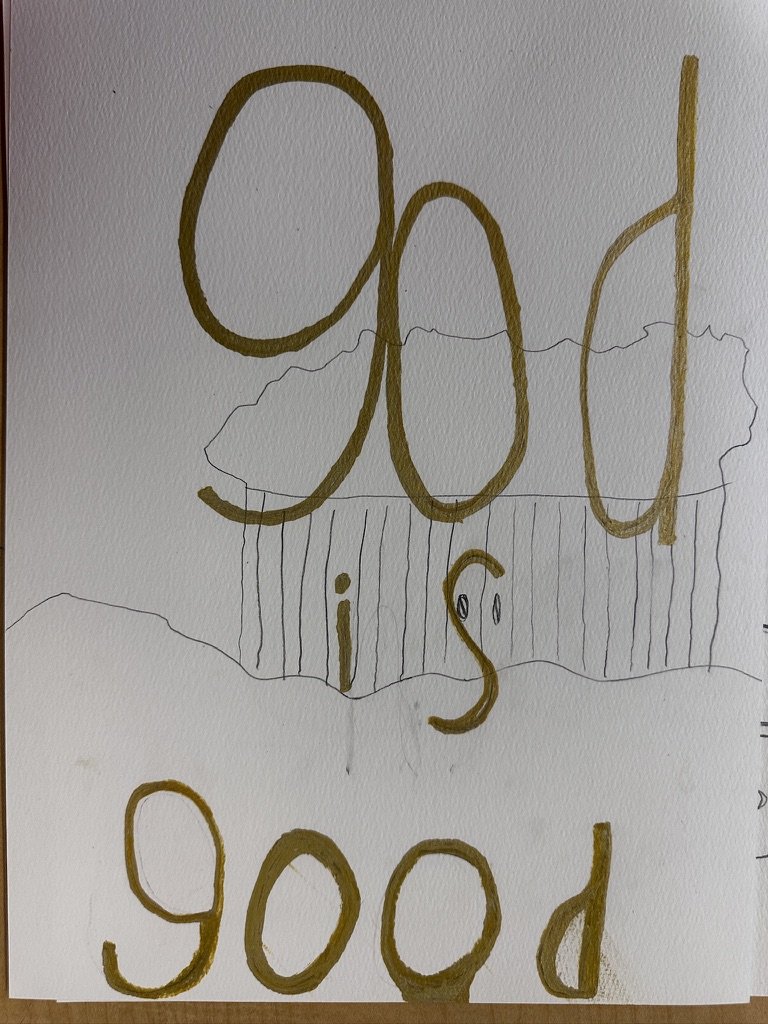 god
is
good